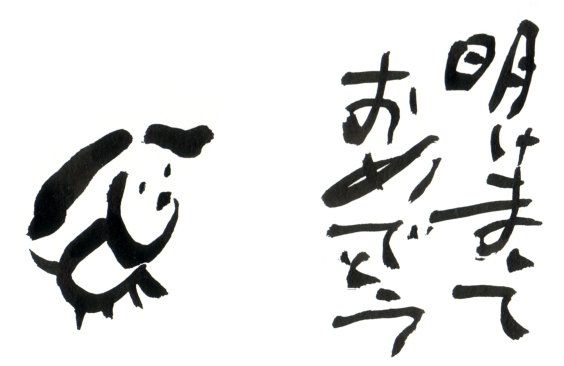 明けまして
おめでとう